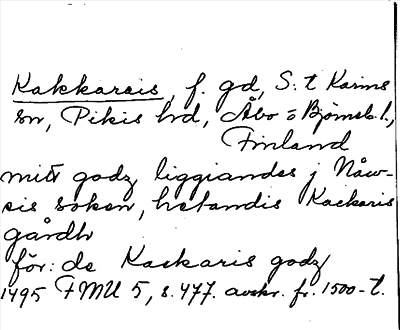 Kakkarais, f. gd, S:t Karins
sn, Pikis hd, Åbo o Björneb. l.,
Finland
mitt godz liggiandes j Nåw-
sis soken, hetandis Kackaris
gårdh
för: de Kackaris godz
1495 FMU 5, s. 477. avskr. fr. 1500-t.